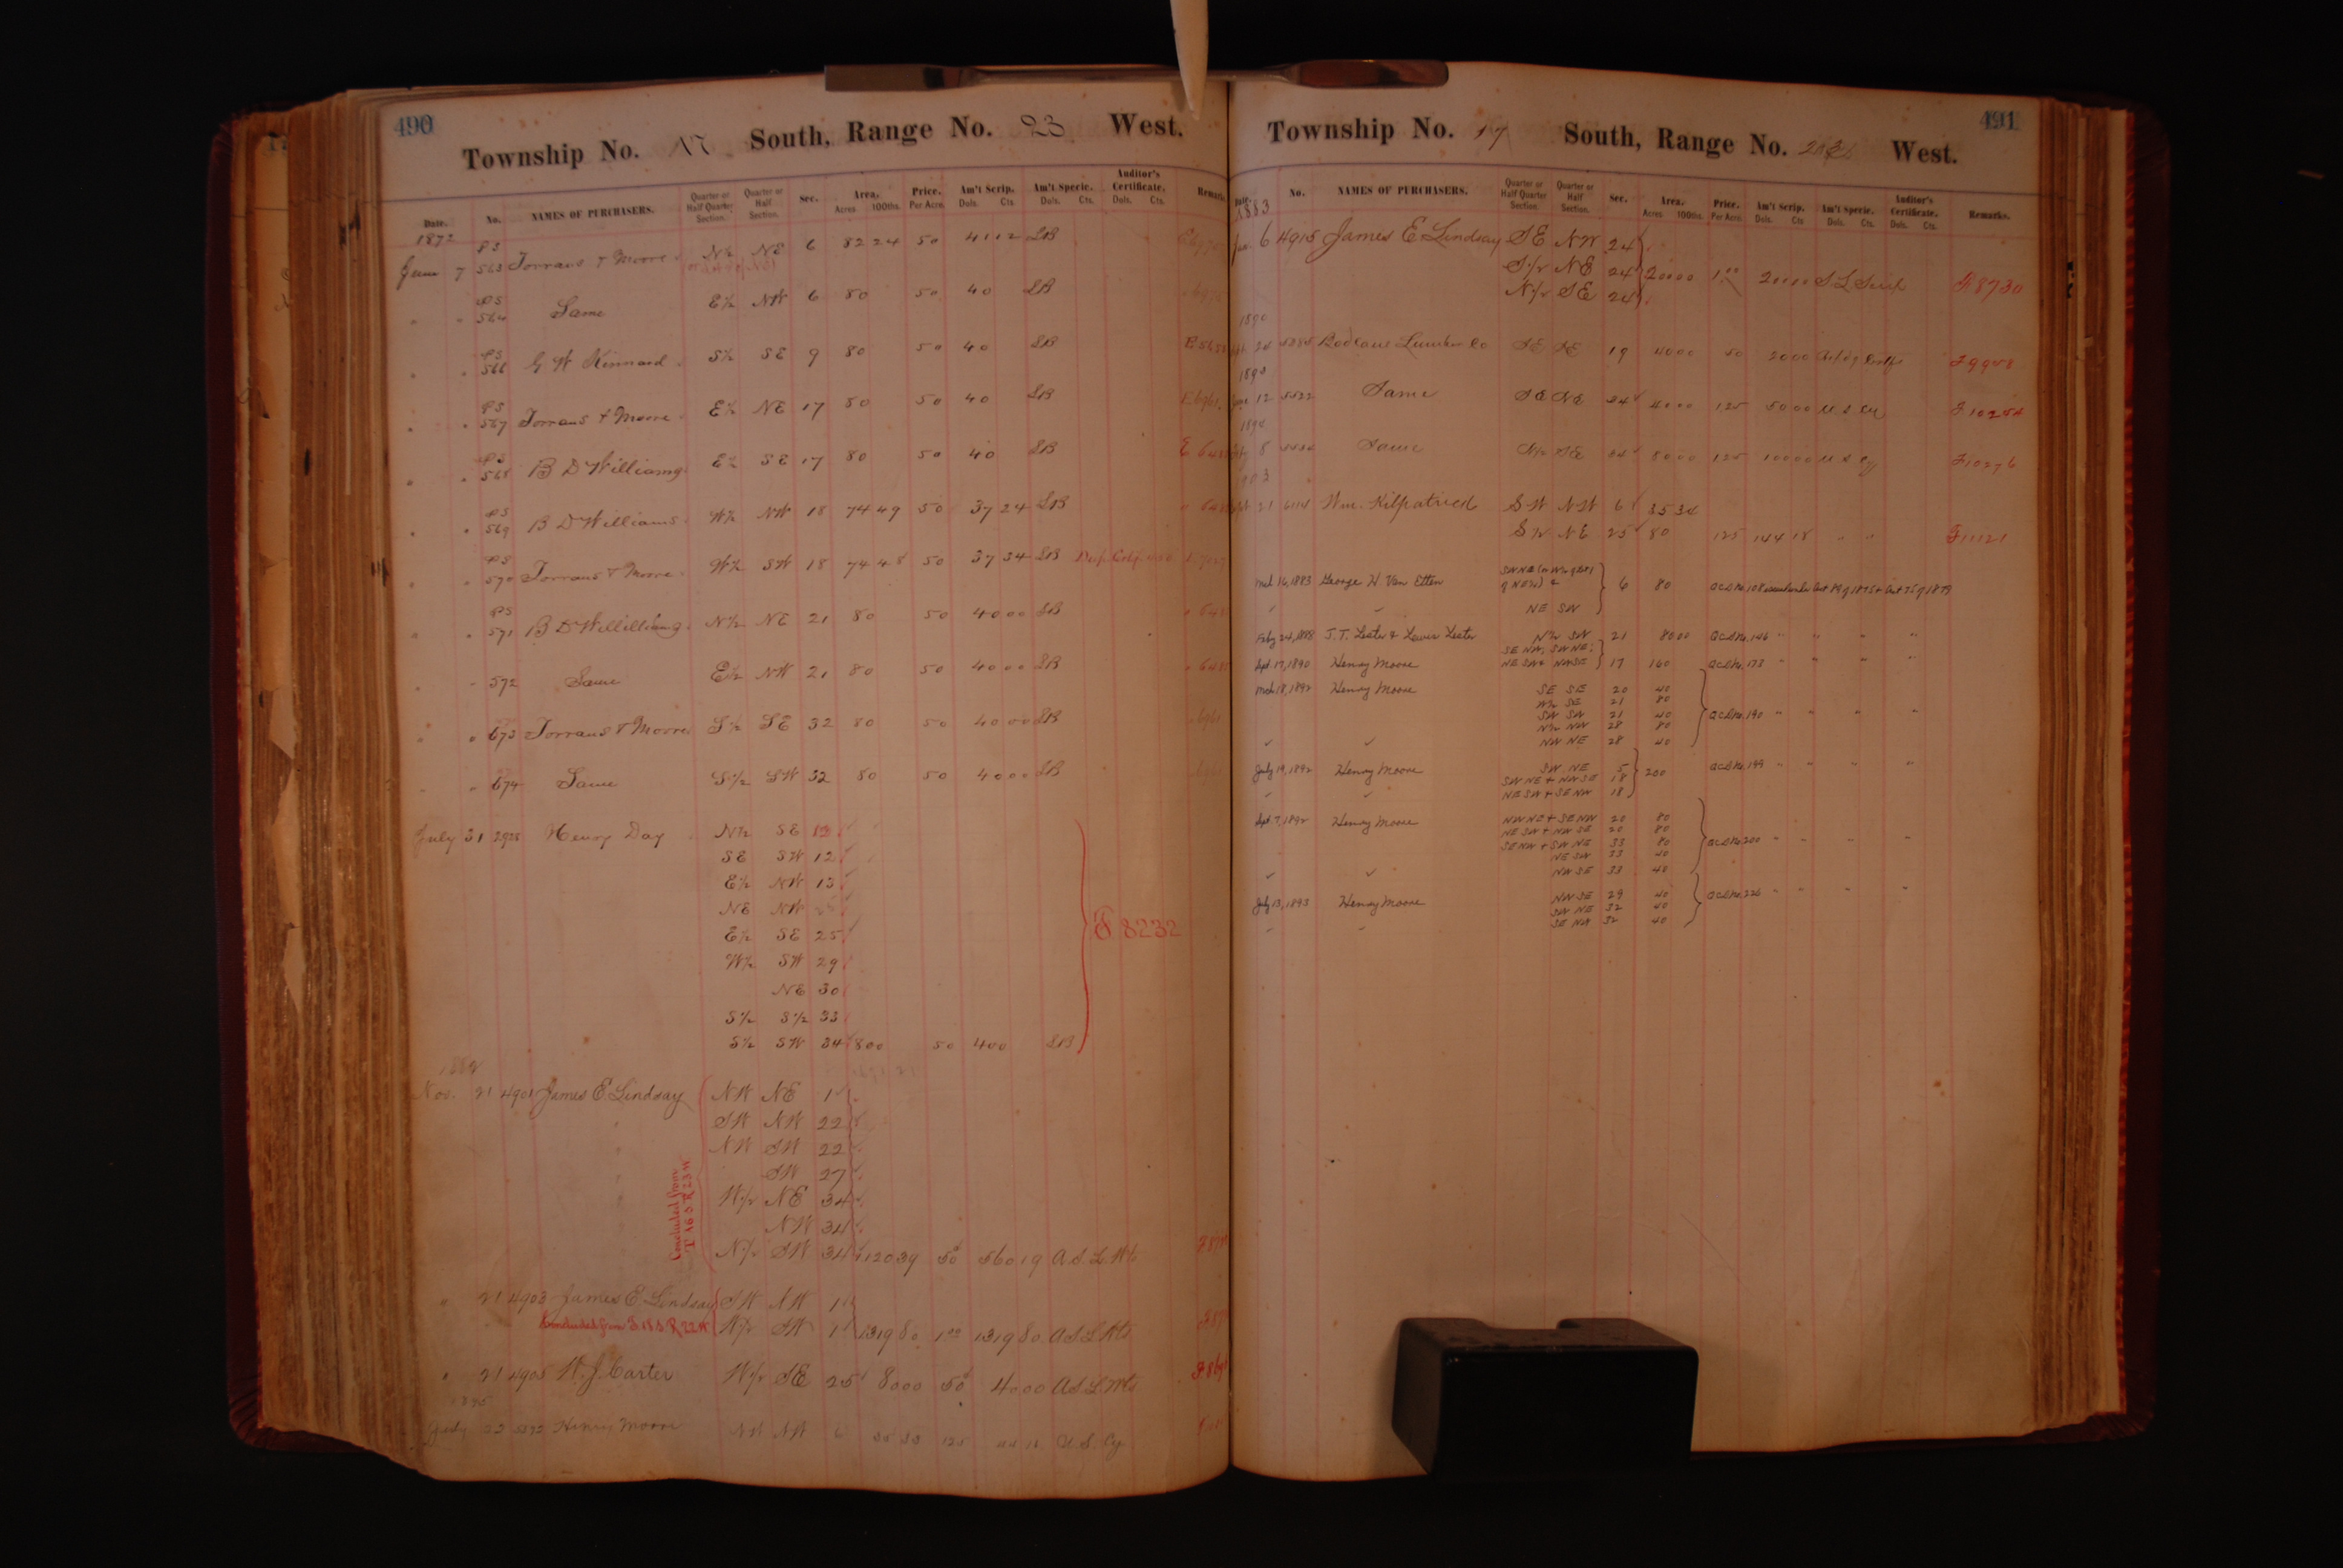 490
Township No. 17 South, Range No. 23 West.
Date. No. NAMES OF PURCHASERS. Quarter or Half Quarter Section. Quarter or Half Section. Sec. Area. Acres 100ths. Price. Per Acre. Am't Scrip. Dols. Cts. Am't Specie. Dols. Cts. Auditor's Certificate. Dols. Cts. Remarks.
1872
June 7 PS 563 Torrans & Moore N½ NE 6 82 24 50 41 12 LB
" " PS 564 Same E½ NW 6 80 50 40 LB
" " PS 566 G W Kinnard S½ SE 9 80 50 40 LB
" " PS 567 Torrans & Moore E½ NE 17 80 50 40 LB
" " PS 568 B D Williams E½ SE 17 80 50 40 LB
" " PS 569 B D Williams W½ NW 18 74 49 50 37 24 LB
" " PS 570 Torrans & Moore W½ SW 18 74 48 50 37 34 LB
" " PS 571 B D Williams N½ NE 21 80 50 40 00 LB
" " 572 Same E½ NW 21 80 50 40 00 LB
" " 673 Torrans & Moore S½ SE 32 80 50 40 00 LB
" " 674 Same S½ SW 32 80 50 40 00 LB
July 31 2925 Henry Day N½ SE 12
SE SW 12
E½ NW 13
NE NW 25
E½ SE 25
F 8232
W½ SW 29
NE 30
S½ S½ 33
S½ SW 34 800 50 400 LB
1882
Nov. 21 4901 James E. Lindsay NW NE 1
" SW NW 22
" NW SW 22
" SW 27
" W½ NE 34
" NW 34
N½ SW 34 1120 39 50 560 19 A.S.L. Wts
Concluded from T 16 S R 23 W
" 21 4903 James E Lindsay SW NW 1
Concluded from T 18 S R 22 W N½ SW 1 1319 80 1 00 1319 80 A S L Wts
" 21 4905 W. J. Carter W½ SE 25 80 00 50 40 00 A S L Wts
1895
July 22 5592 Henry Moore NW NW 6 35 33 125 44 16 U.S. Cy
491
Township No. 17 South, Range No. 23 West.
Date. No. NAMES OF PURCHASERS. Quarter or Half Quarter Section. Quarter or Half Section. Sec. Area. Acres 100ths. Price. Per Acre. Am't Scrip. Dols. Cts. Am't Specie. Dols. Cts. Auditor's Certificate. Dols. Cts. Remarks.
1883
Jan. 6 4915 James E Lindsay SE NW 24
S½ NE 24 200 00 1 00 200 00 S L Scrip F 8730
N½ SE 24
1890
20 5285 Bodcaw Lumber Co SE SE 19 40 00 50 20 00 F 9958
June 12 5522 Same SE NE 34 40 00 125 50 00 U S Cy F 10254
8 5534 Same N½ SE 34 80 00 125 100 00 U S Cy F 10276
21 6114 Wm. Kilpatrick SW NW 6 35 34
S½ NE 25 80 125 144 18 " " F 11121
Mch 16, 1883 George H. Van Etten SW NE (or W½ of Lot 1 of NE¼) & 6 80 O.C.D. No. 108 issued under Act 89 of 1875 & Act 75 of 1879
✓ ✓ NE SW
Feby 24, 1888 J. T. Lester & Lewis Lester N½ SW 21 80 00 O.C.D. No. 146 " " " "
SE NW, SW NE;
Sept 17, 1890 Henry Moore NE SW & NW SE 17 160 O.C.D. No. 173 " " "
Mch 18, 1892 Henry Moore SE SE 20 40
W½ SE 21 80
SW SW 21 40 O.C.D. No. 190 " " " "
N½ NW 28 80
✓ ✓ NW NE 28 40
July 19, 1892 Henry Moore SW NE 5 200 O.C.D. No. 199 " " " "
SW NE & NW SE 18
✓ ✓ NE SW & SE NW 18
Sept. 7, 1892 Henry Moore NW NE & SE NW 20 80
NE SW & NW SE 20 80
SE NW & SW NE 33 80 O.C.D. No. 200 " " " "
NE SW 33 40
✓ ✓ NW SE 33 40
July 13, 1893 Henry Moore NW SE 29 40 O.C.D. No. 226 " " " "
SW NE 32 40
SE NW 32 40